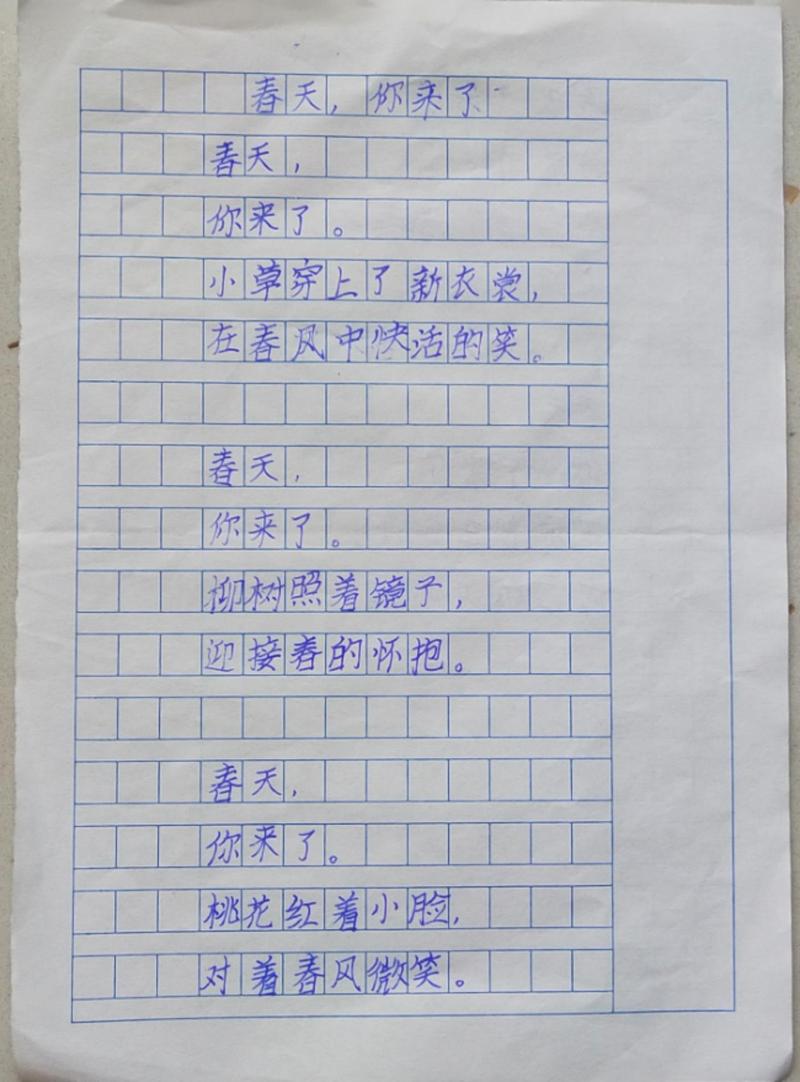 春天，你来了
春天，
你来了。
小草穿上了新衣裳，
在春风中快活的笑。
春天，
你来了。
柳树照着镜子，
迎接春的怀抱。
春天，
你来了。
桃花红着小脸，
对着春风微笑。